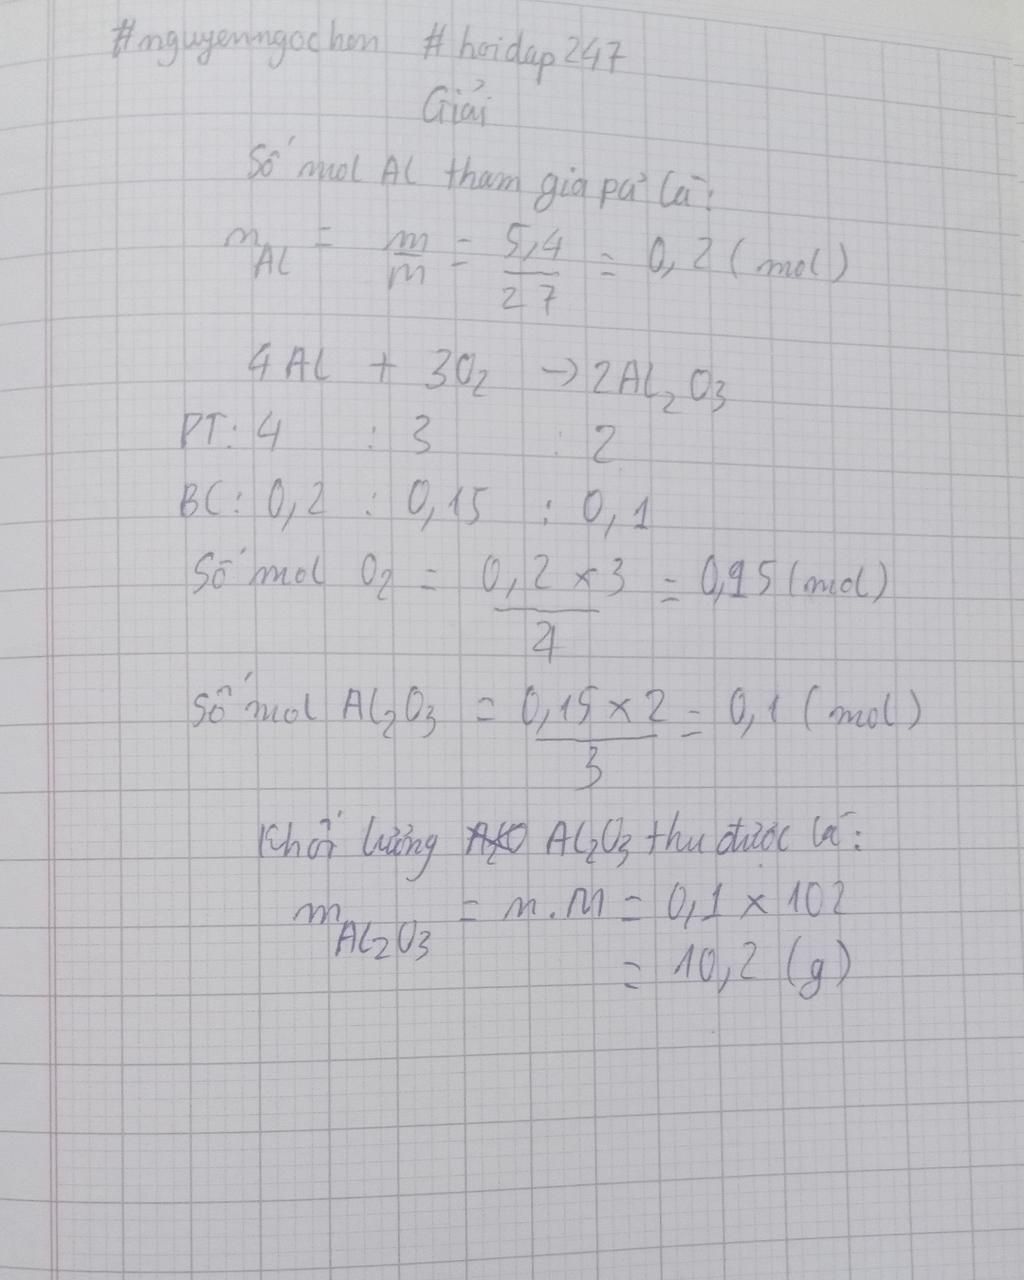 #nguyenngochen #hoidap247
Giải
Số mol Al tham gia pư là:
n Al = m/m = 5,4/27 = 0,2 (mol)
4Al + 3O2 → 2Al2O3
PT: 4 : 3 : 2
BC: 0,2 : 0,15 : 0,1
Số mol O2 = 0,2 × 3/4 = 0,15 (mol)
Số mol Al2O3 = 0,15 × 2/3 = 0,1 (mol)
Khối lượng Al2O3 thu được là:
m Al2O3 = n.M = 0,1 × 102
= 10,2 (g)